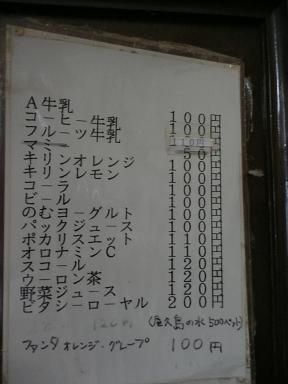 A牛乳 100円
コーヒー牛乳 100円
フルーツ牛乳 110円
マミー 50円
キリンオレンジ 100円
キリンレモン 100円
コーラ 100円
ビール 100円
のむヨーグルト 100円
パックジュース 100円
ポカリスエット 110円
オロナミンC 110円
スコール 120円
ウーロン茶 120円
野菜ジュース 120円
ビタシーローヤル 200円
(屋久島の水 500ペット)
ファンタ オレンジ・グレープ 100円